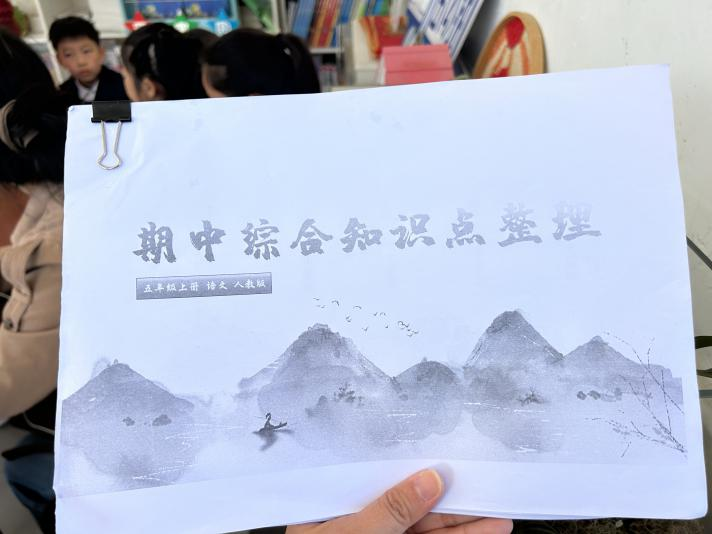 期中综合知识点整理
五年级上册 语文 人教版